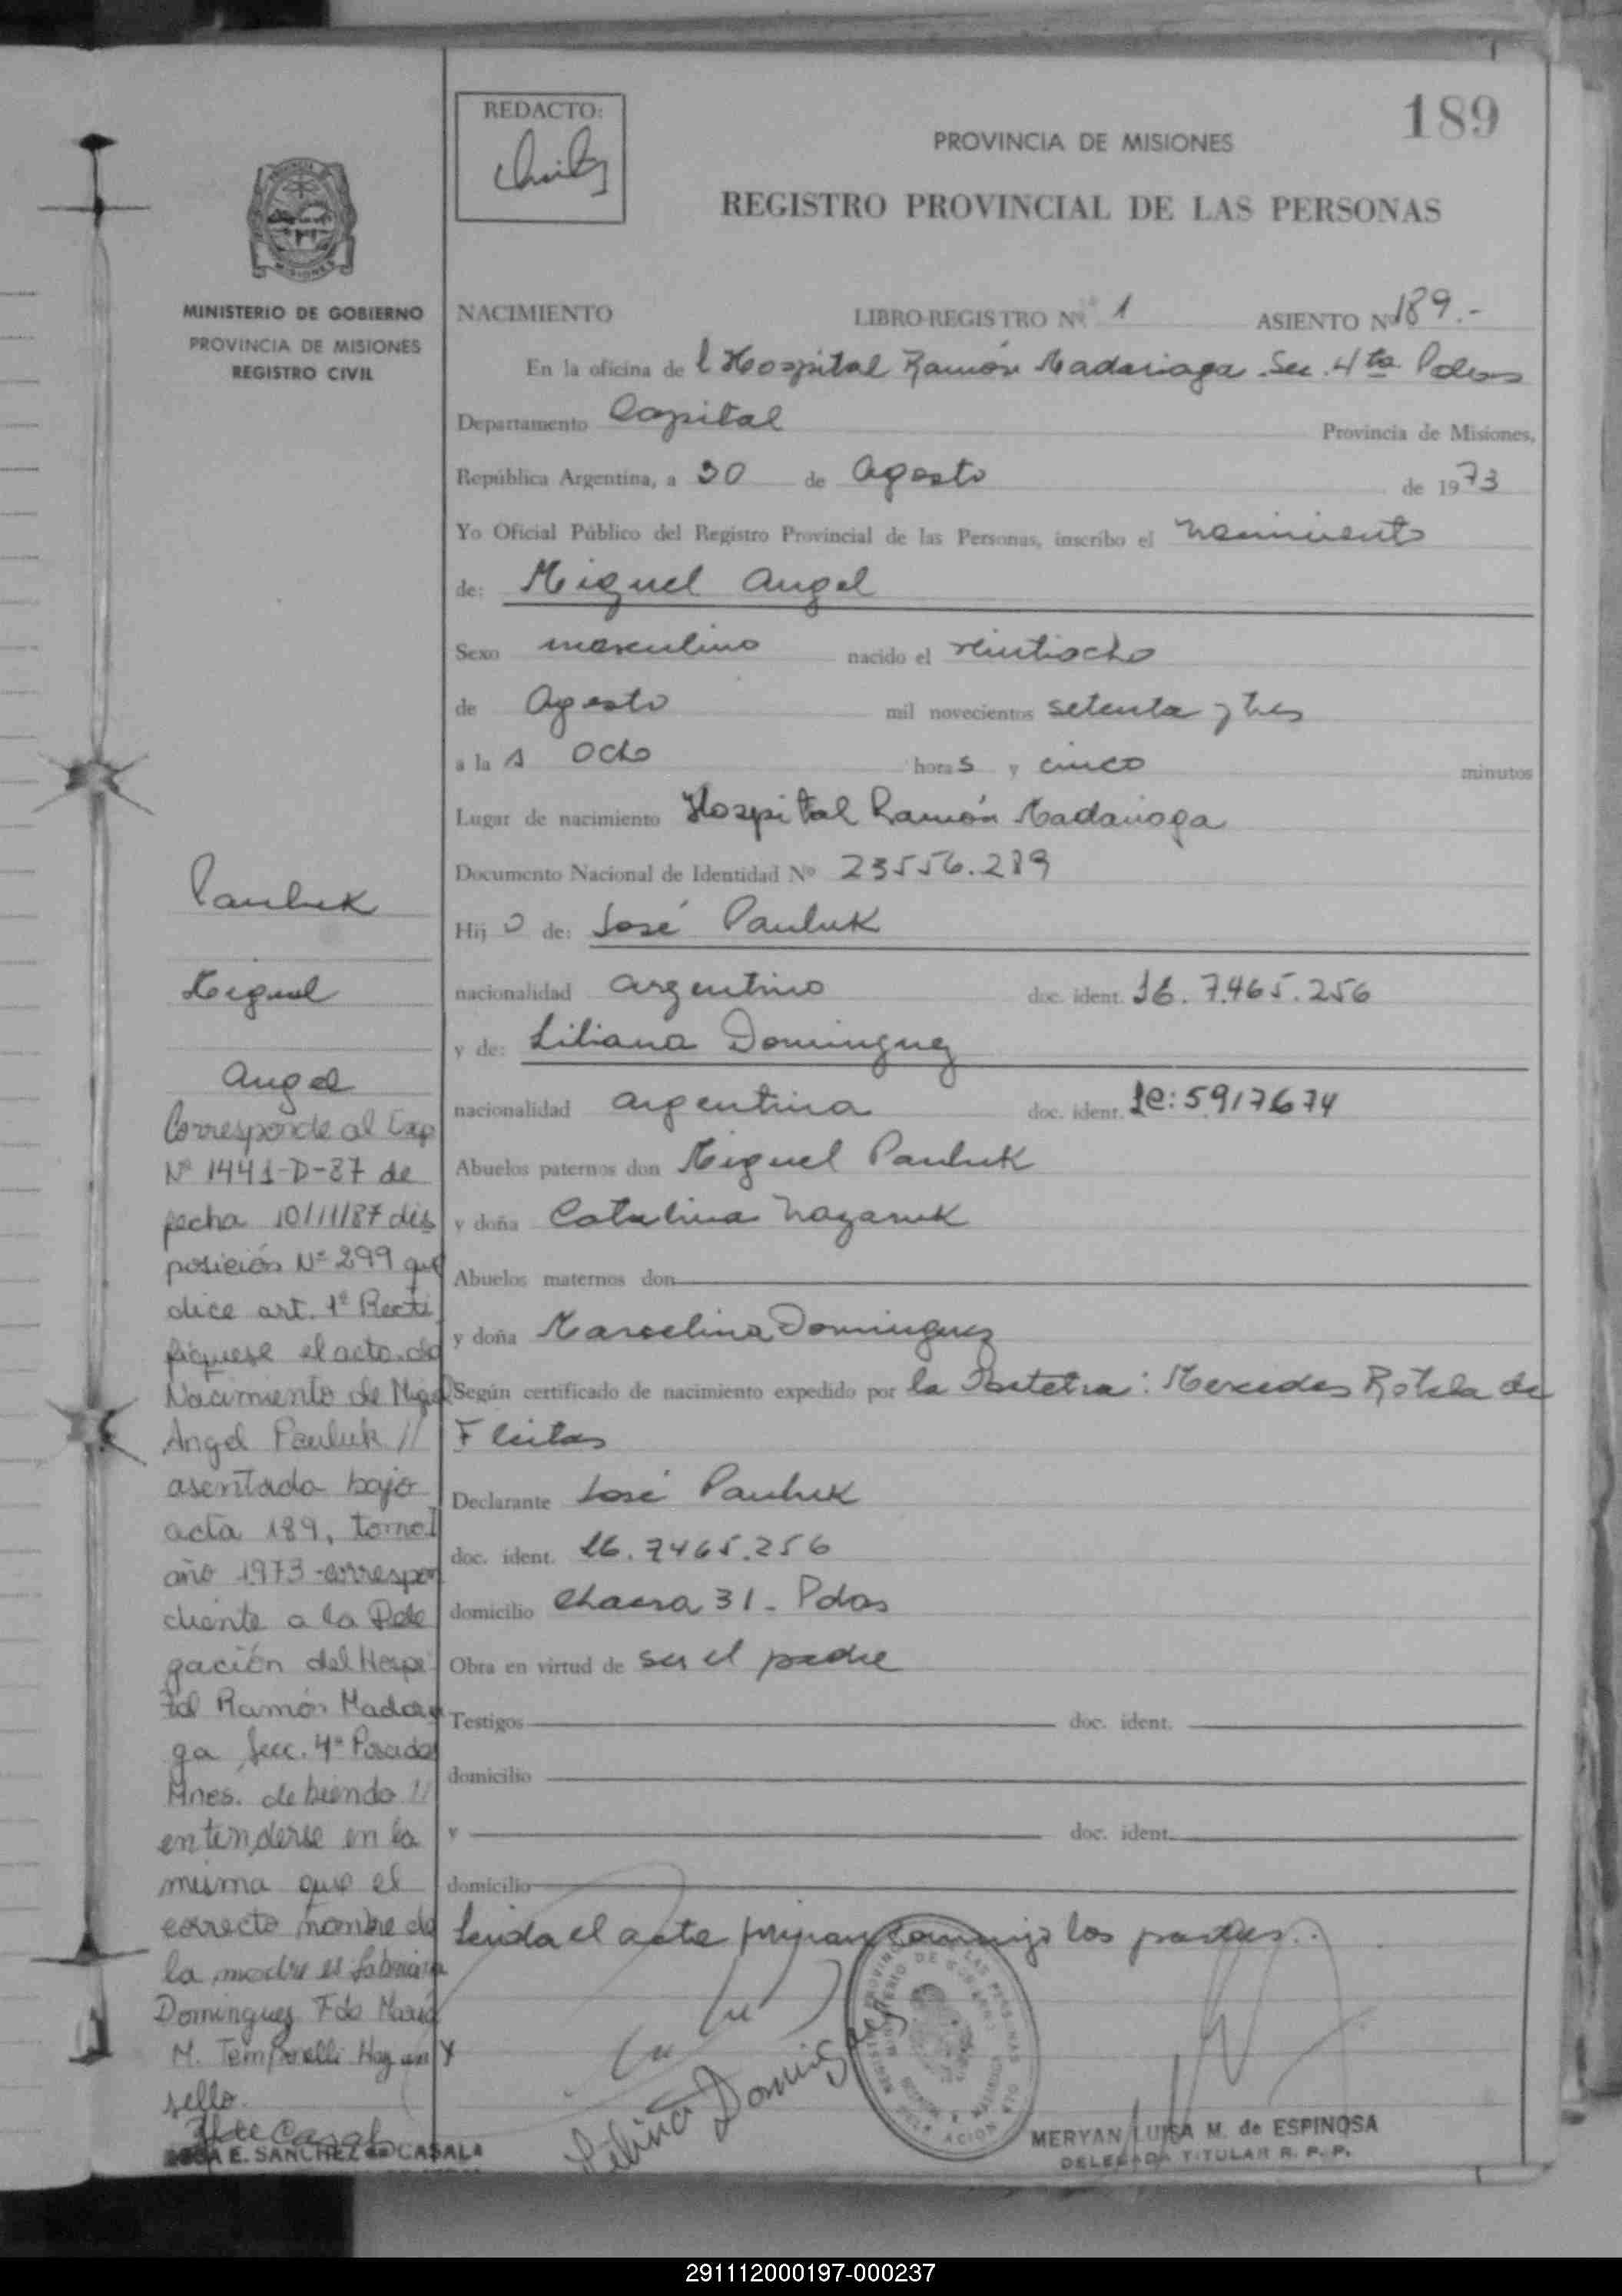 189
REDACTO:
PROVINCIA DE MISIONES
REGISTRO PROVINCIAL DE LAS PERSONAS
MINISTERIO DE GOBIERNO
PROVINCIA DE MISIONES
REGISTRO CIVIL
NACIMIENTO LIBRO REGISTRO Nº 1 ASIENTO Nº 189.-
En la oficina de l Hospital Ramón Madariaga Sec. 4ta Pdas
Departamento Capital Provincia de Misiones,
República Argentina, a 30 de Agosto de 1973
Yo Oficial Público del Registro Provincial de las Personas, inscribo el nacimiento
de: Miguel Angel
Sexo masculino nacido el veintiocho
de Agosto mil novecientos setenta y tres
a la s ocho horas y cinco minutos
Lugar de nacimiento Hospital Ramón Madariaga
Documento Nacional de Identidad Nº 23556.289
Hijo de: José Pauluk
nacionalidad argentino doc. ident. M. 7.465.256
y de: Liliana Dominguez
nacionalidad argentina doc. ident. LC: 5917674
Abuelos paternos don Miguel Pauluk
y doña Catalina Nazaruk
Abuelos maternos don
y doña Marcelina Dominguez
Según certificado de nacimiento expedido por la Obstetra: Mercedes Rotela de
Fleitas
Declarante José Pauluk
doc. ident. M. 7465.256
domicilio Chacra 31 - Pdas
Obra en virtud de ser el padre
Testigos doc. ident.
domicilio
y doc. ident.
domicilio
Leida el acta firman conmigo los padres.
Pauluk
Miguel
Angel
Corresponde al Exp
Nº 1441-D-87 de
fecha 10/11/87 dis
posición Nº 299 que
dice art. 1º Recti
fiquese el acta de
Nacimiento de Miguel
Angel Pauluk //
asentada bajo
acta 189, tomo I
año 1973 - correspon
diente a la Dele
gación del Hospi
tal Ramón Madaria
ga Secc. 4ª Posadas
Mnes. debiendo //
entenderse en la
misma que el
correcto nombre de
la madre es
Dominguez Fdo Maria
M. Temporelli Hay un
sello.
E. SANCHEZ de CASALA
Dominguez
MERYAN LUISA M. de ESPINOSA
DELEGADA TITULAR R. P. P.
291112000197-000237